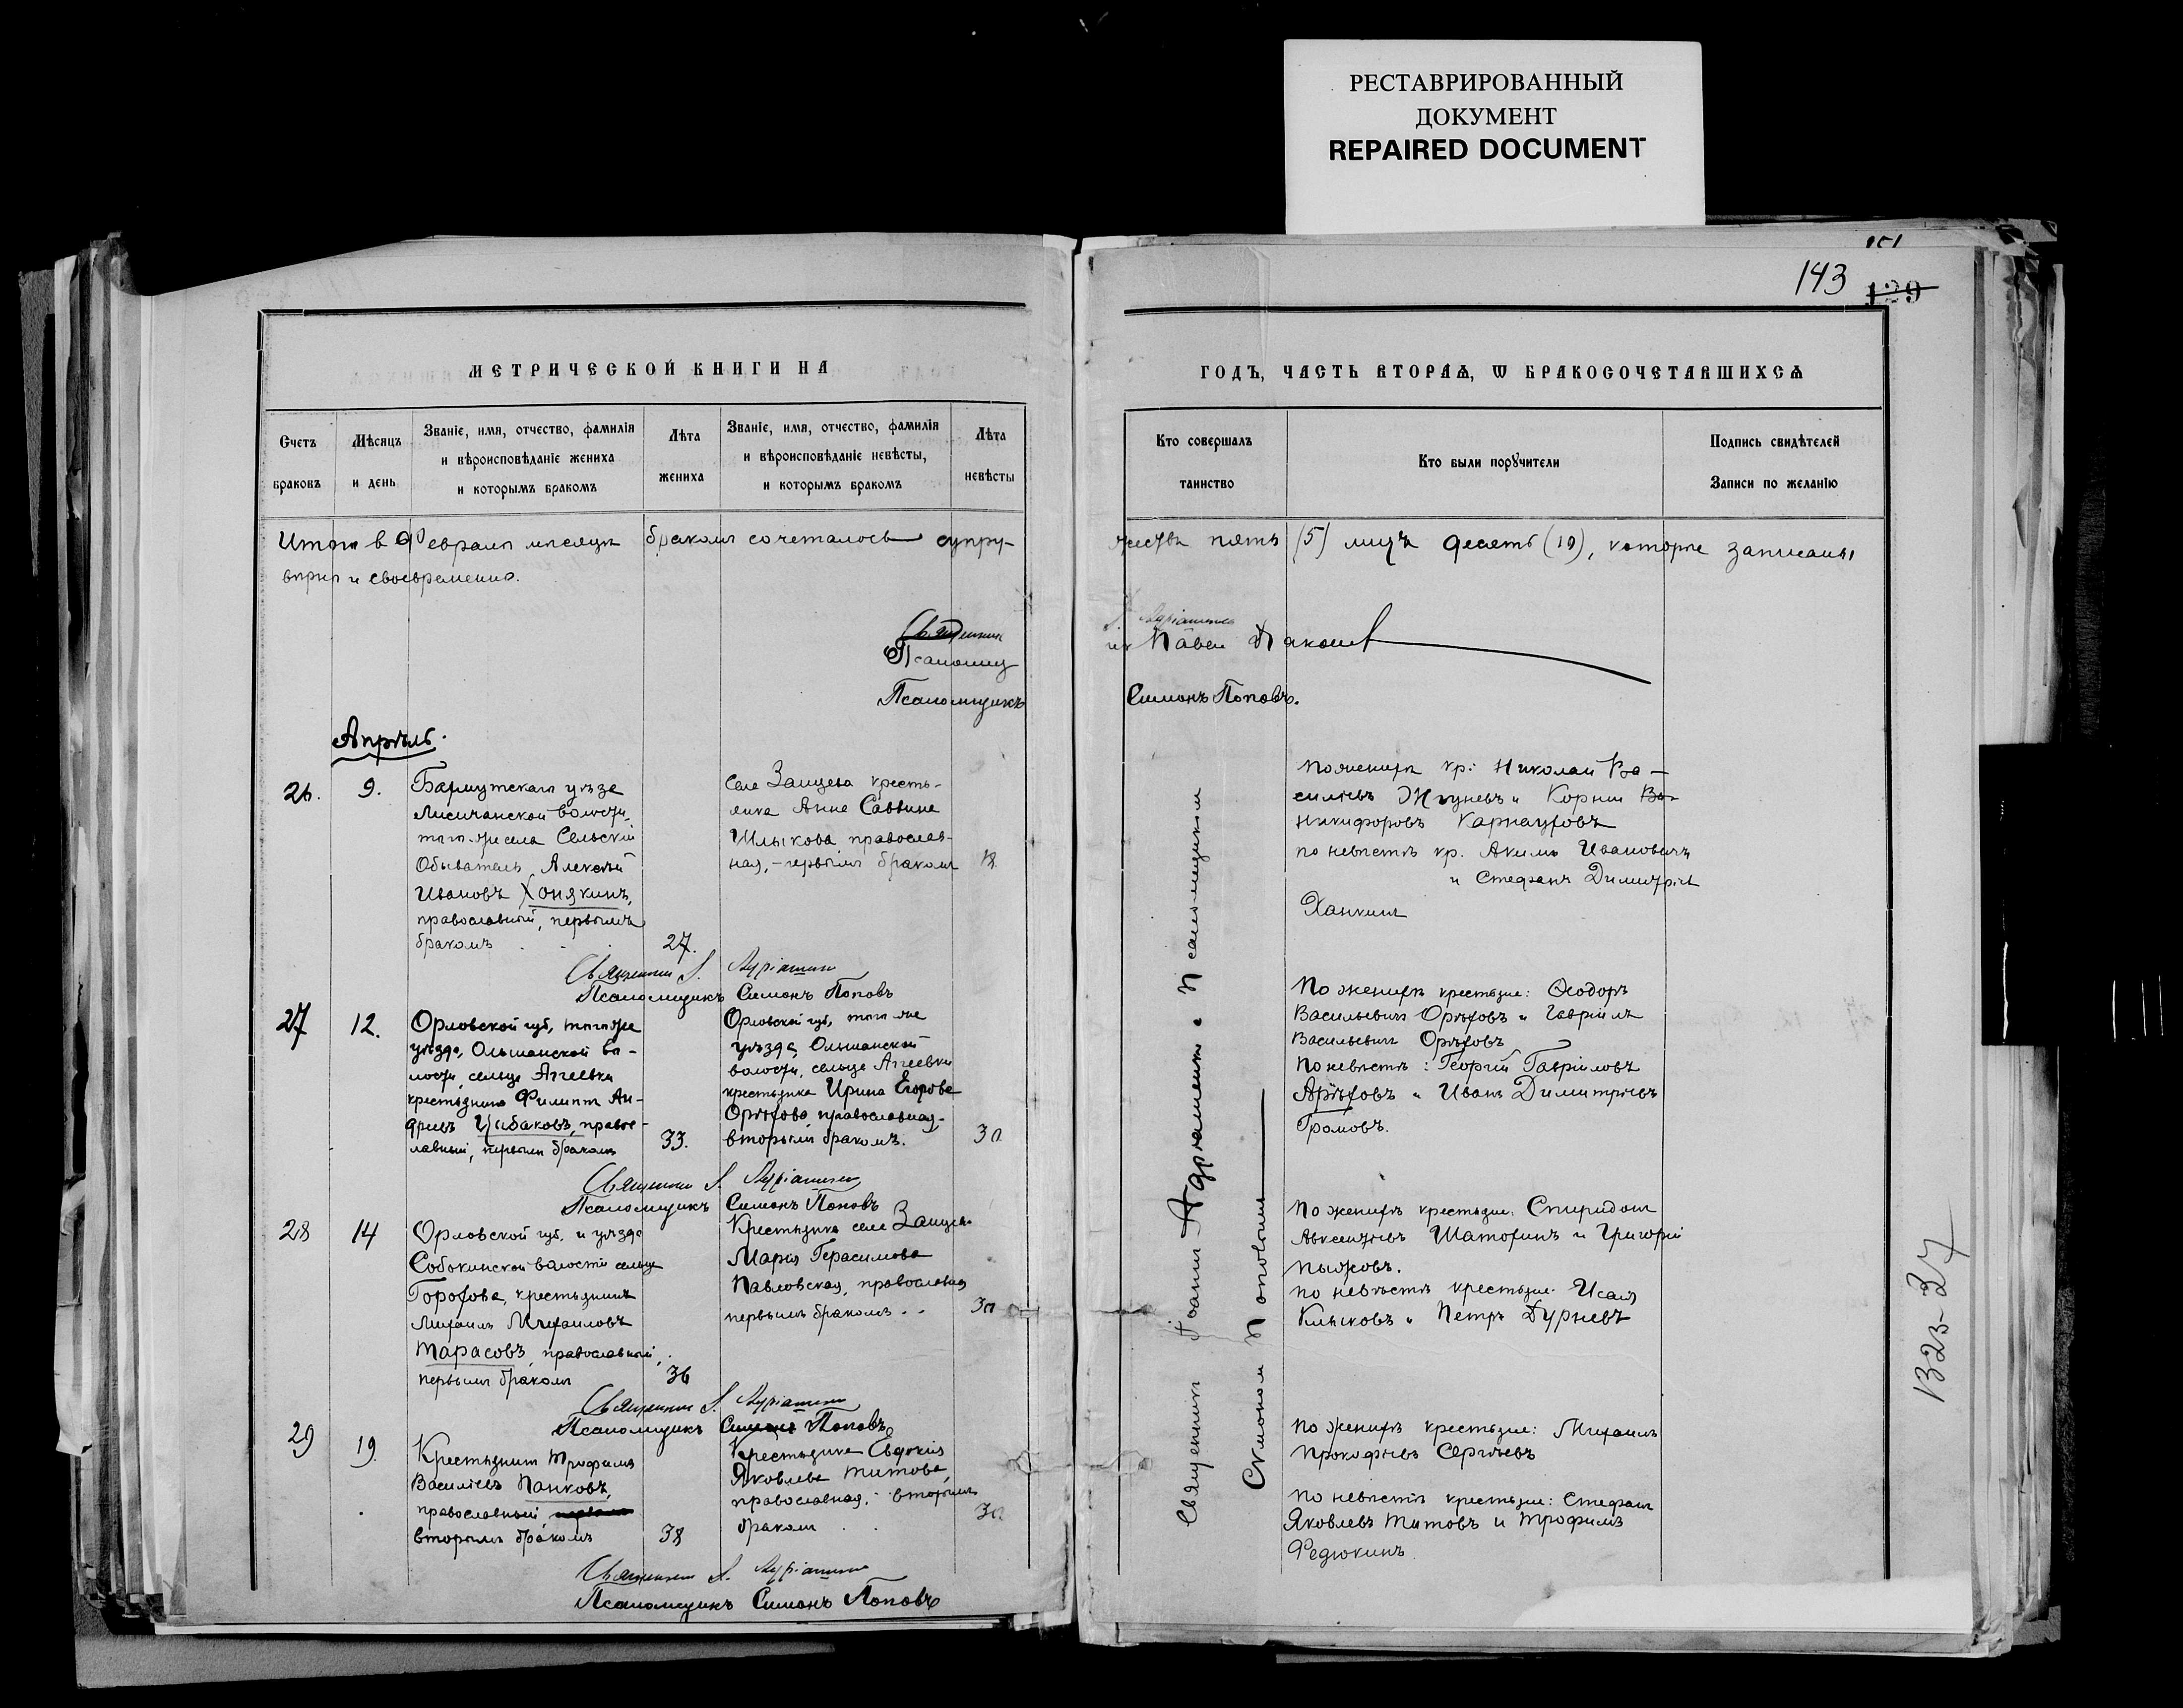 РЕСТАВРИРОВАННЫЙ
ДОКУМЕНТ
REPAIRED DOCUMENT
143
129
МЕТРИЧЕСКОЙ КНИГИ НА
ГОДЪ, ЧАСТЬ ВТОРАѦ, Ѡ БРАКОСОЧЕТАВШИХСѦ
Счетъ браковъ
Мѣсяцъ и день
Званіе, имя, отчество, фамилія
и вѣроисповѣданіе жениха
и которымъ бракомъ
Лѣта жениха
Званіе, имя, отчество, фамилія
и вѣроисповѣданіе невѣсты,
и которымъ бракомъ
Лѣта невѣсты
Кто совершалъ таинство
Кто были порꙋчители
Подпись свидѣтелей
Записи по желанію
Итого в Феврале месяце бракомъ сочеталось супру-
жества пять (5) лицъ десять (10), которые записаны
верно и своевременно.
Псаломщ
Павел
Псаломщикъ Симонъ Поповъ.
Апрѣль.
26. 9.
Бахмутскаго уезда
Лисичанской волости,
того-же села Сельскій
Обыватель Алексѣй
Ивановъ Хонякинъ,
православный, первымъ
бракомъ
27.
Села Зайцева кресть-
янка Анна Саввина
Шлыкова православ-
ная, - первымъ бракомъ
18
По жениху кр: Николай Ва-
сильевъ Жгуневъ и Корней
Никифоровъ Карнауховъ
по невестѣ кр. Акимъ Ивановичъ
и Стефанъ Димитріев
Ханкин
Священникъ І.
Псаломщикъ Симонъ Поповъ
27 12.
Орловской губ, того же
уѣзда, Ольшанской во-
лости, сельца Агеевки
крестьянинъ Филиппъ Ан-
дреевъ Цыбаковъ, право-
славный, первымъ бракомъ
33.
Орловской губ, того же
уѣзда, Ольшанской
волости, сельца Агеевки
крестьянка Ирина Егорова
Орѣхова, православная,
вторымъ бракомъ.
30
По жениху крестьяне: Ѳеодоръ
Васильевичъ Орѣховъ и Гавріилъ
Васильевичъ Орѣховъ
По невестѣ: Георгій Гавріиловъ
Арѣховъ и Иванъ Димитріевъ
Громовъ.
Священникъ І.
Псаломщикъ Симонъ Поповъ
28 14
Орловской губ. и уѣзда
Собакинской волости сельца
Горохова, крестьянинъ
Михаилъ Михаиловъ
Тарасовъ, православный,
первымъ бракомъ
36
Крестьянка села Зайцева
Марія Герасимова
Павловская, православная
первымъ бракомъ..
30
По жениху крестьяне: Спиридон
Авксентіевъ Шатохинъ и Григорій
Пыжовъ.
по невѣстѣ крестьяне: Исаія
Клыковъ и Петръ Дурневъ
Священникъ І.
Псаломщикъ Симонъ Поповъ
29 19.
Крестьянинъ Трофимъ
Василіевъ Панковъ,
православный,
вторымъ бракомъ
38
Крестьянка Евдокія
Яковлева Титова,
православная, - вторымъ
бракомъ
30
По жениху крестьяне: Михаилъ
Прокофіевъ Сергѣевъ
По невестѣ крестьяне: Стефанъ
Яковлевъ Титовъ и Трофимъ
Федюкинъ
Священникъ І.
Псаломщикъ Симонъ Поповъ
Священникъ Іоаннъ Адріаненко с Псаломщиком
Симоном Поповымъ
В23-37